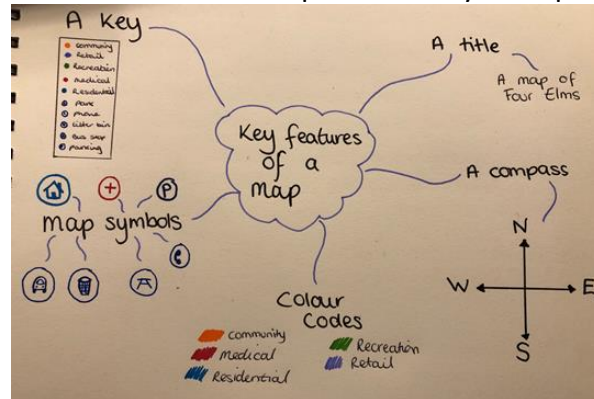 A Key
community
Retail
Recreation
Medical
Residential
park
phone
litter bin
Bus stop
parking
A title
A map of
Four Elms
Key features
of a
map
A compass
N
W
E
S
P
map symbols
Colour
Codes
community
Medical
Residential
Recreation
Retail